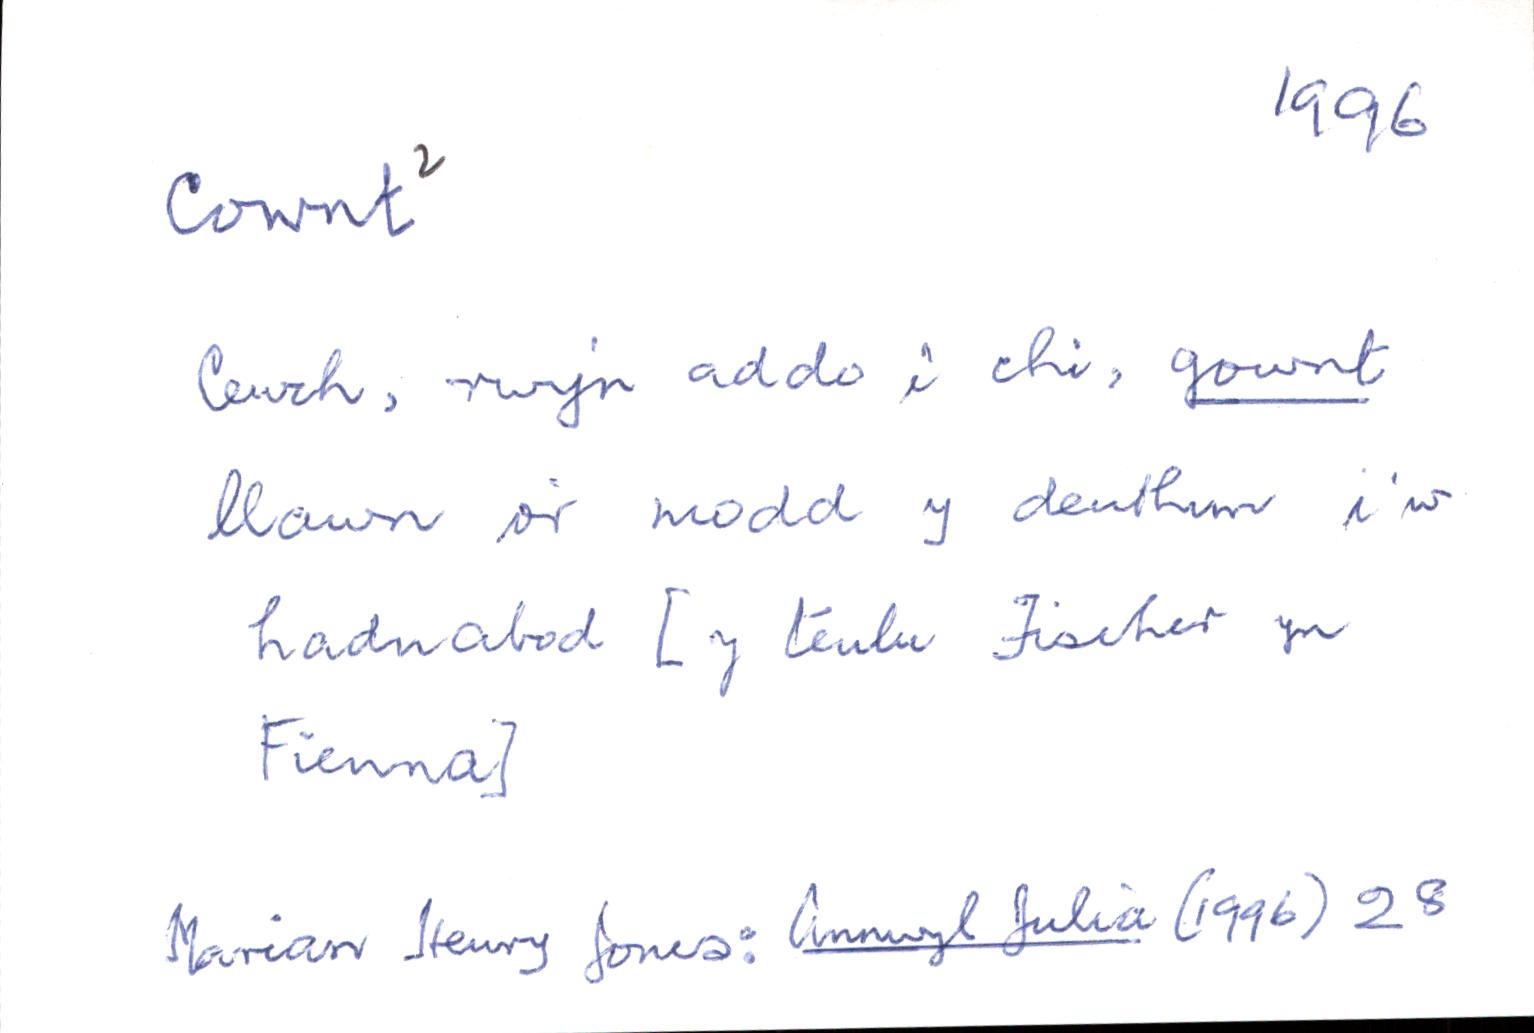 1996
Cownt²
Cewch, rwy'n addo i chi, gownt
llawn o'r modd y deuthum i'w
hadnabod [y teulu Fischer yn
Fienna]
Marian Henry Jones: Annwyl Julia (1996) 28